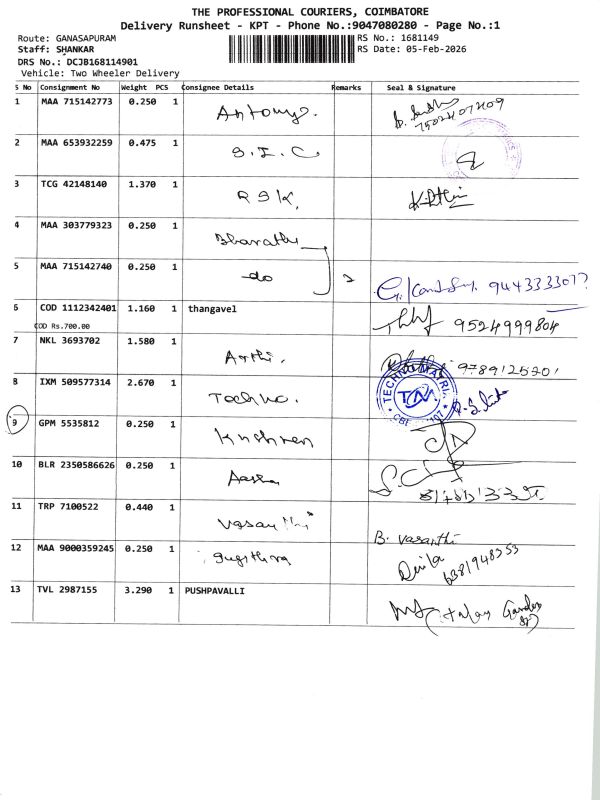 THE PROFESSIONAL COURIERS, COIMBATORE
Delivery Runsheet - KPT - Phone No.:9047080280 - Page No.:1
Route: GANASAPURAM
RS No.: 1681149
Staff: SHANKAR
RS Date: 05-Feb-2026
DRS No.: DCJB168114901
Vehicle: Two Wheeler Delivery
S No Consignment No Weight PCS Consignee Details Remarks Seal & Signature
1 MAA 715142773 0.250 1 Antony.
2 MAA 653932259 0.475 1 S.I.C
3 TCG 42148140 1.370 1 RSK.
4 MAA 303779323 0.250 1 Bharathi
5 MAA 715142740 0.250 1 do 2
6 COD 1112342401 1.160 1 thangavel 9524999804
COD Rs.700.00
7 NKL 3693702 1.580 1 Arthi.
8 IXM 509577314 2.670 1 Techno. TECHNO MATRI
9 GPM 5535812 0.250 1
10 BLR 2350586626 0.250 1
11 TRP 7100522 0.440 1 B. Vasanthi
12 MAA 9000359245 0.250 1 6381948353
13 TVL 2987155 3.290 1 PUSHPAVALLI